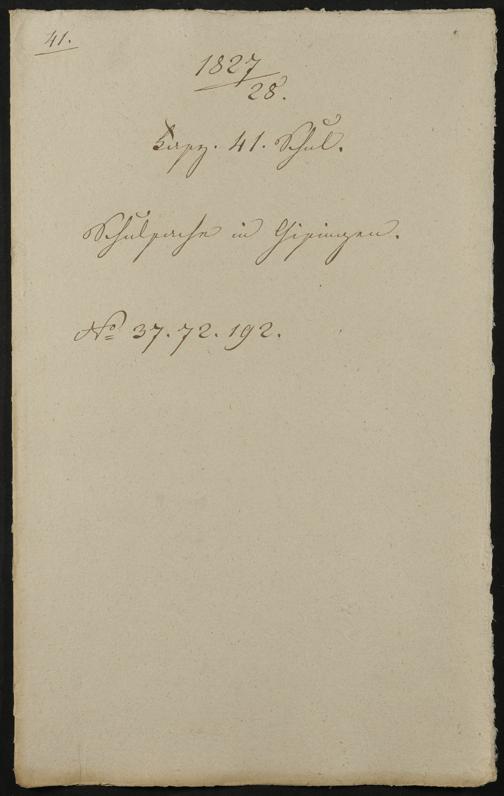 41.
1827/28.
Fasz. 41. Schul.
Schulsache in Gisingen.
No 37. 72. 192.